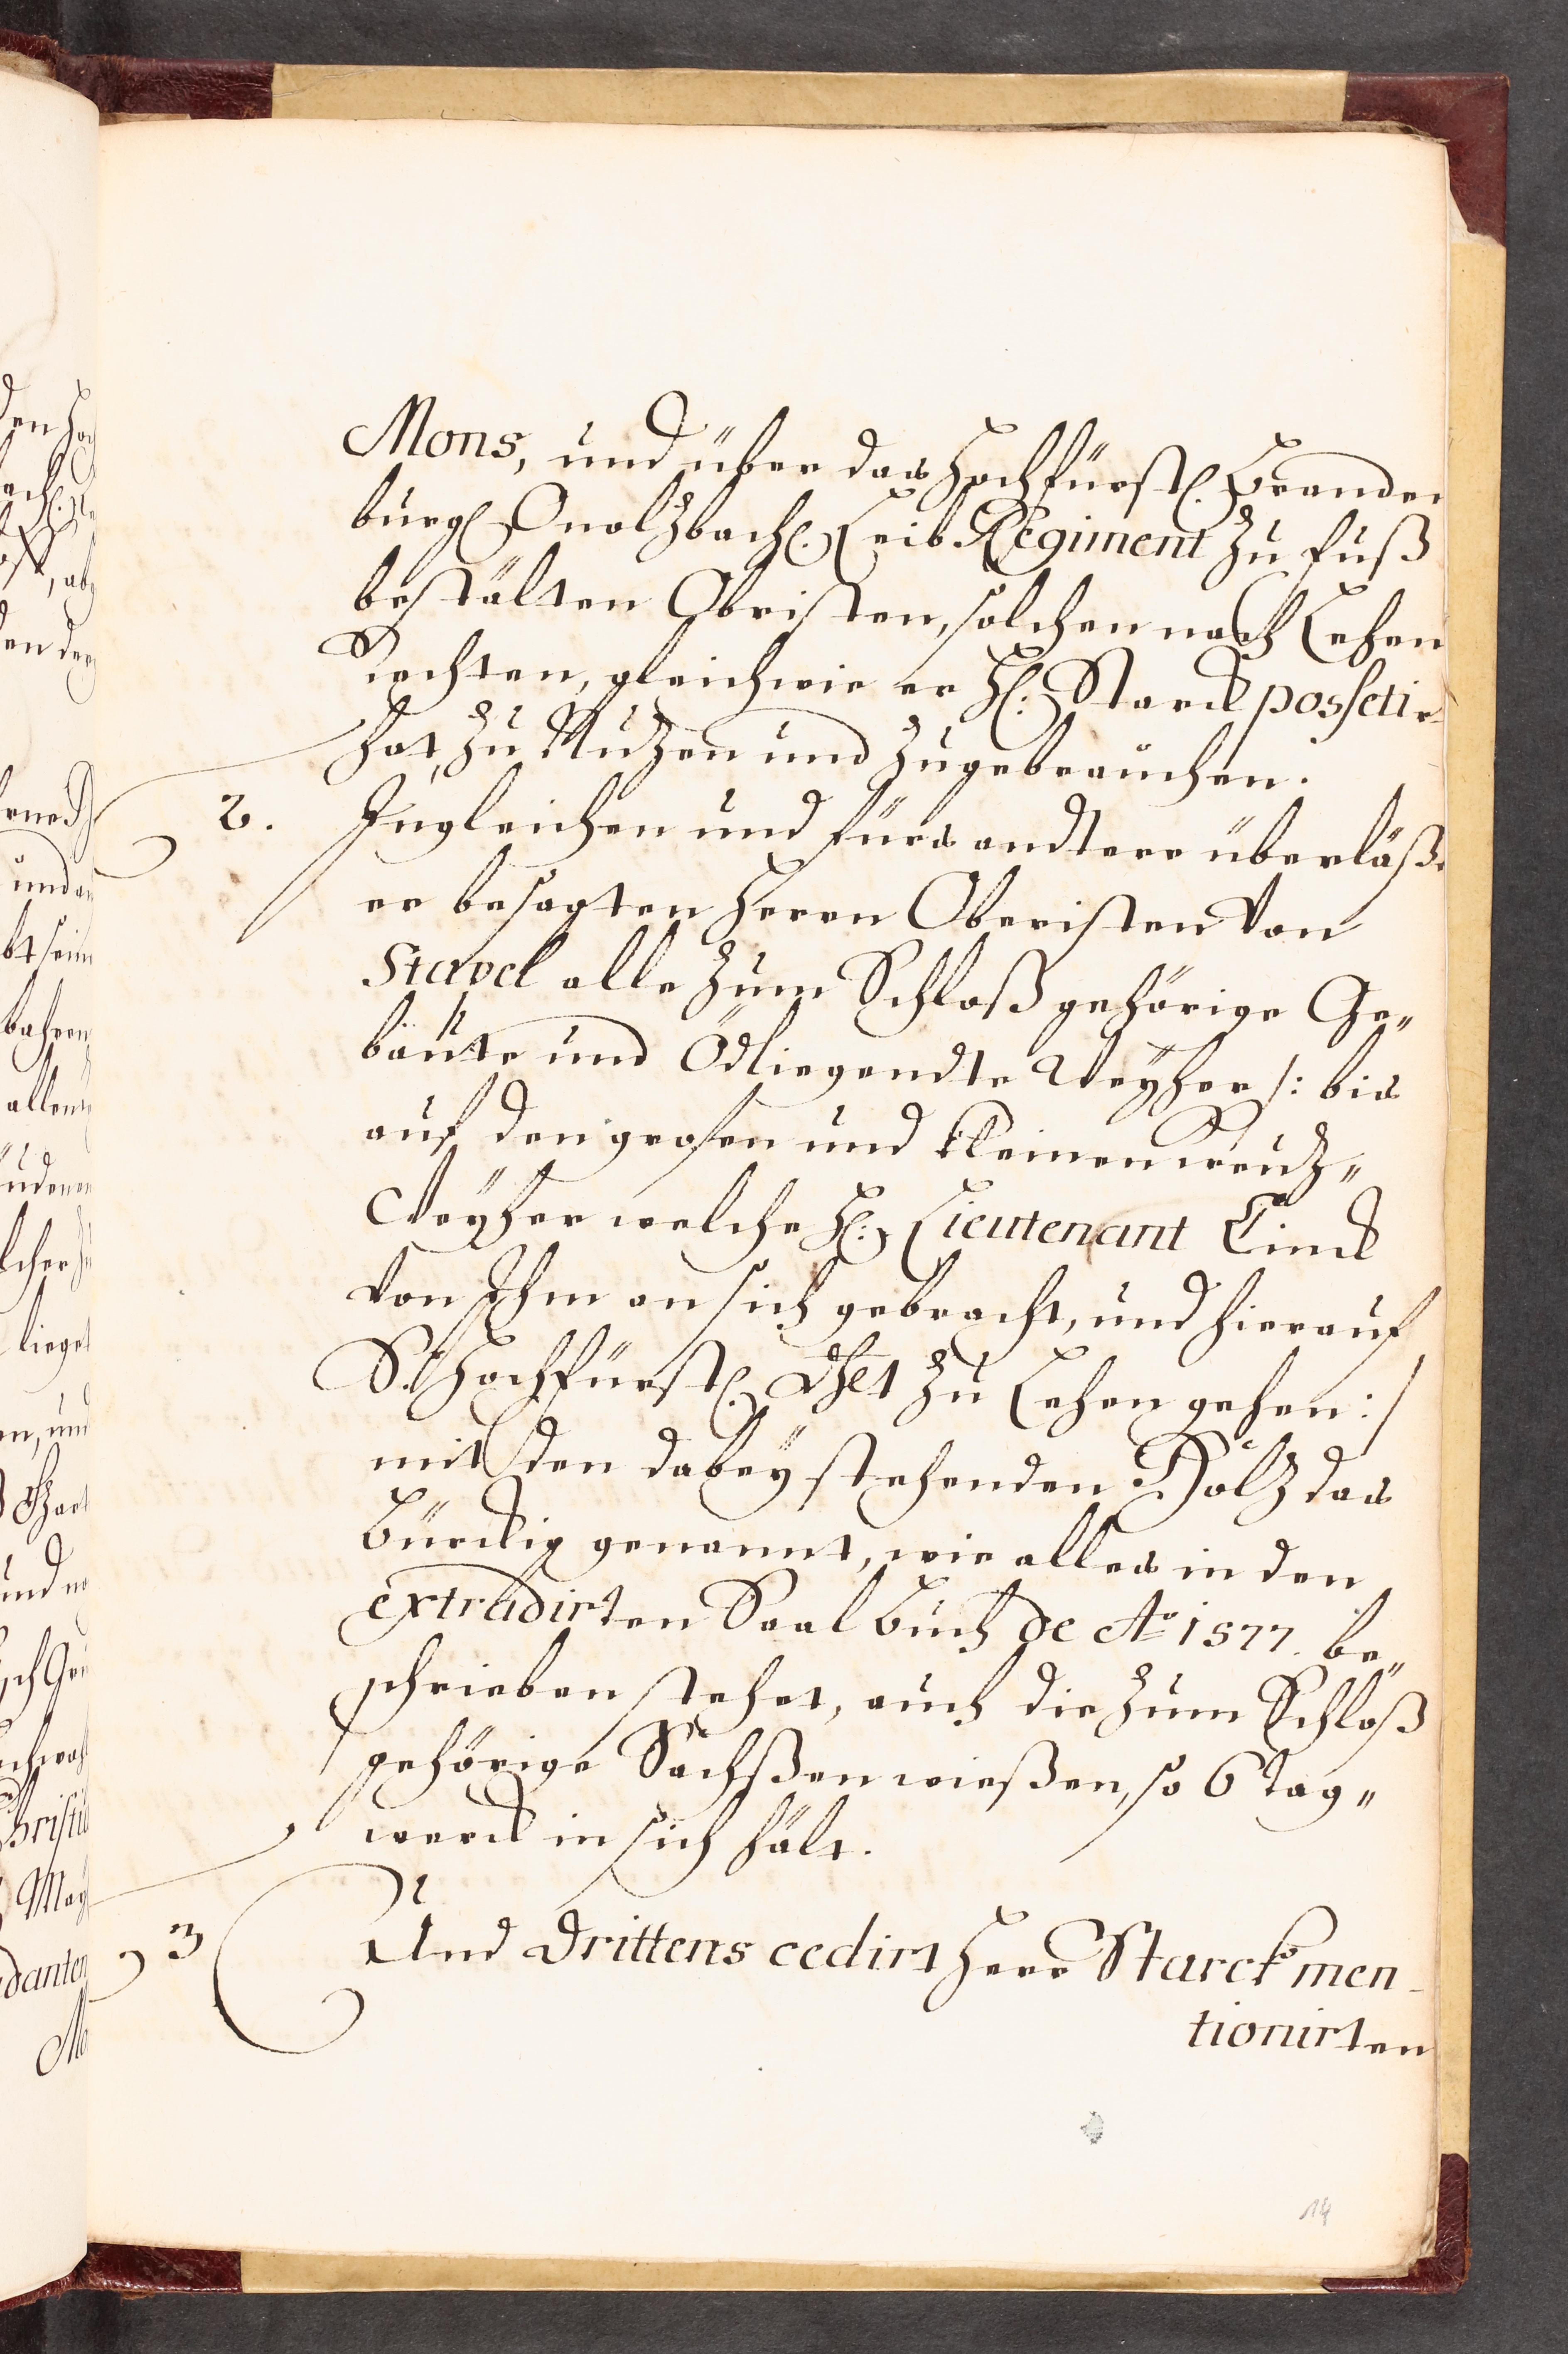 Mons, und über das Hochfürstl. Branden
burgl Onolzbachl. Leib Regiment zu fuß
bestälten Obristen, solchen nach Lehen
Rechten, gleichwie er H: Starck possetirt
hat, zu Nuzen und zugebrauchen.
2. Ingleichen und fürs andtere überläßt
er besagten Herrn Oberisten von
Stavel alle zum Schloß gehörige Ge„
bäute und Ödliegendte Weyher /: bis
auf den grosen und kleinen Kreuz„
Weyher welche H: Lieutenant Linck
von Ihm an sich gebracht, und hierauf
Sr. Hochfürstl. Dhlt zu Lehen gehen :/
mit den dabey stehenden Hölz das
Bürckig genannt, wie alles in den
extradirten Saal Buch de Ao 1577. be„
schrieben stehet, auch die zum Schloß
gehörige Sachßen wießen, so 6 tag„
werck in sich hält.
3 Und Drittens cedirt Herr Starck men-
tionirten
14